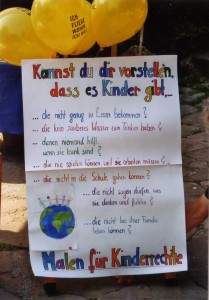 ICH
FLIEGE
WOHIN
ICH WILL
Kannst du dir vorstellen,
dass es Kinder gibt,...
... die nicht genug zu Essen bekommen?
... die kein sauberes Wasser zum Trinken haben?
... denen niemand hilft,
wenn sie krank sind?
... die nie spielen können und sie arbeiten müssen?
... die nicht in die Schule gehen können?
... die nicht sagen dürfen, was
sie denken und fühlen?
... die nicht bei ihrer Familie
leben können?
Malen für Kinderrechte